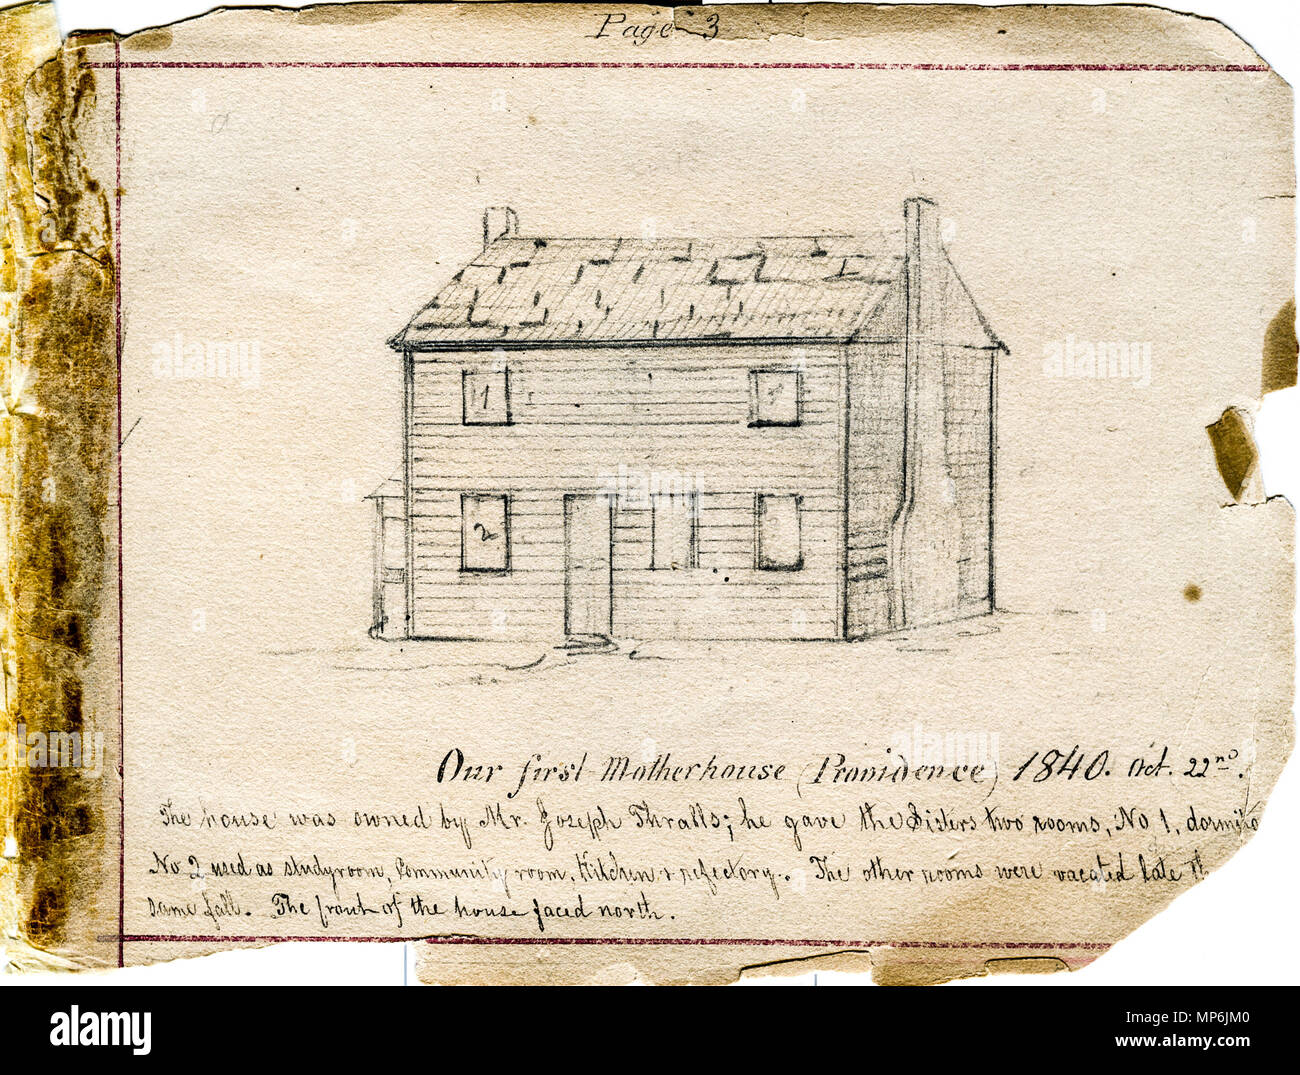 Page 3
1
2
Our first Motherhouse (Providence) 1840. Oct. 22nd.
The house was owned by Mr. Joseph Thralls; he gave the Sisters two rooms, No 1, dormito
No 2 used as studyroom, Community room, Kitchen & refectory. The other rooms were vacated late th
same fall. The front of the house faced north.
alamy
alamy stock photo
MP6JM0
www.alamy.com